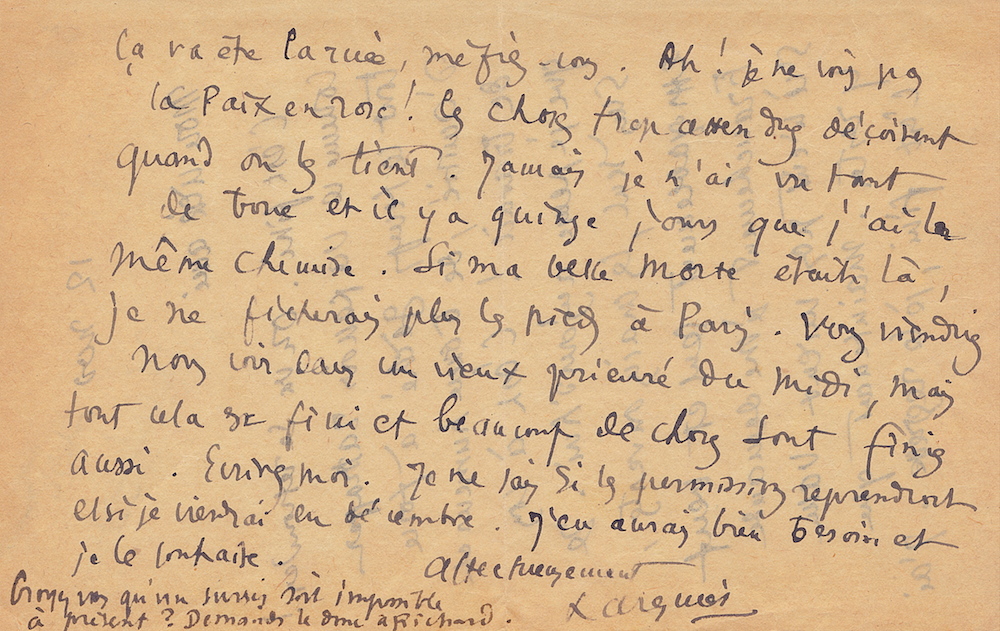 ça va être la ruée, méfiez-vous. Ah! je ne vois pas
la Paix en rose! les choses trop attendues déçoivent
quand on les tient. Jamais je n'ai vu tant
de boue et il y a quinze jours que j'ai la
même chemise. Si ma belle Morte était là,
je ne ficherais plus les pieds à Paris. Vous viendriez
nous voir dans un vieux prieuré du midi, mais
tout cela est fini et beaucoup de choses sont finies
aussi. Ecrivez moi. Je ne sais si les permissions reprendront
et si je viendrai en décembre. J'en aurais bien besoin et
je le souhaite.
affectueusement
Larguier
Croyez vous qu'un sursis soit impossible
à présent? Demandez le donc à Richard.